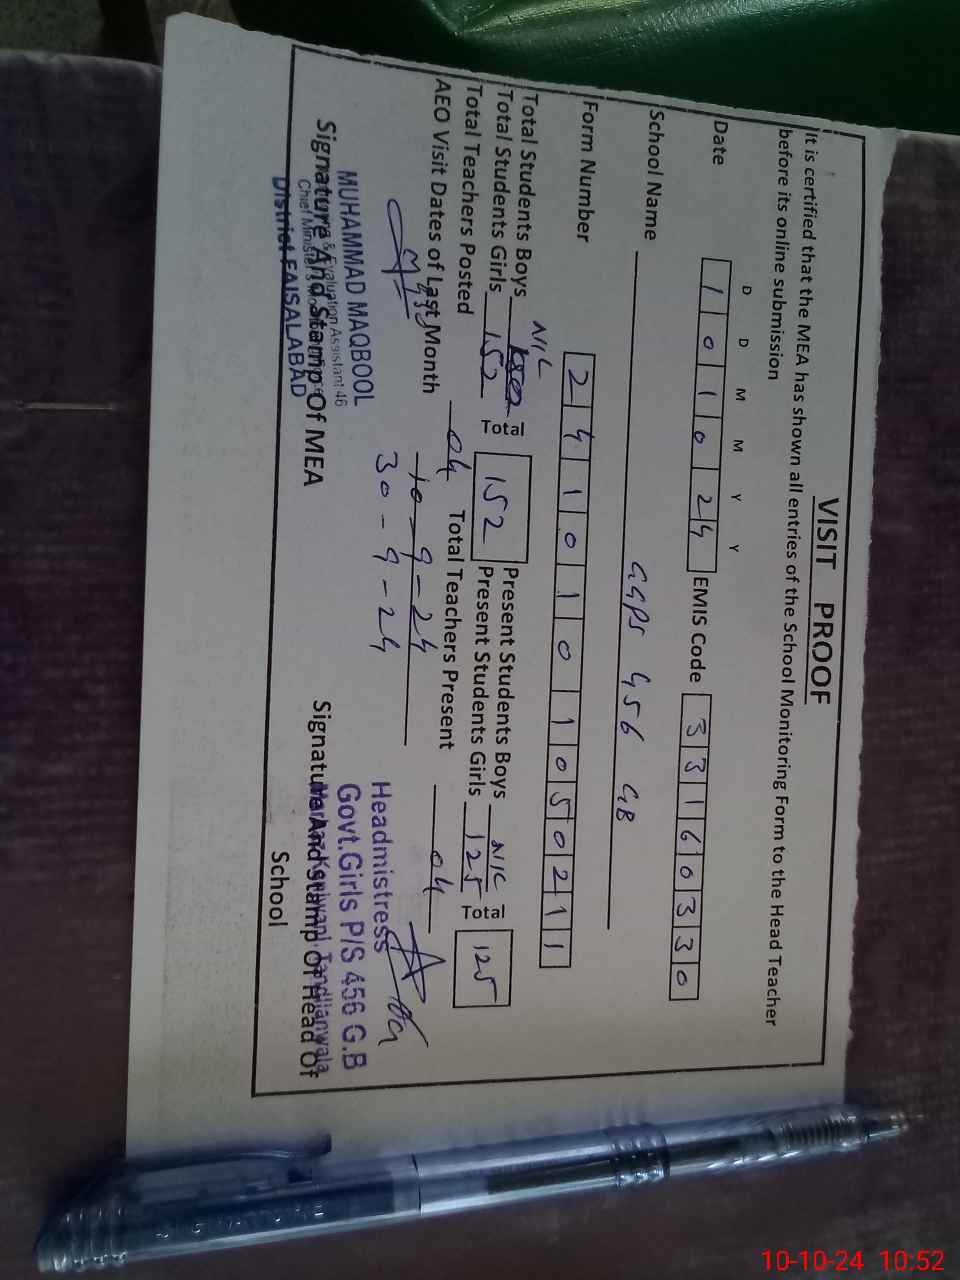 VISIT PROOF
It is certified that the MEA has shown all entries of the School Monitoring Form to the Head Teacher
before its online submission
D D M M Y Y
Date 1 0 1 0 2 4 EMIS Code 3 3 1 6 0 3 3 0
School Name GGPS 456 GB
Form Number 2 4 1 0 1 0 1 0 5 0 2 1 1
Total Students Boys NIL Present Students Boys NIL
Total Students Girls 152 Total 152 Present Students Girls 125 Total 125
Total Teachers Posted 04 Total Teachers Present 04
AEO Visit Dates of Last Month 10-9-24
30-9-24
MUHAMMAD MAQBOOL
Monitoring & Evaluation Assistant 46
Chief Minister's
District FAISALABAD
Signature And Stamp Of MEA
Headmistress
Govt.Girls P/S 456 G.B
Tandlianwala
Signature And Stamp Of Head Of
School
10-10-24 10:52